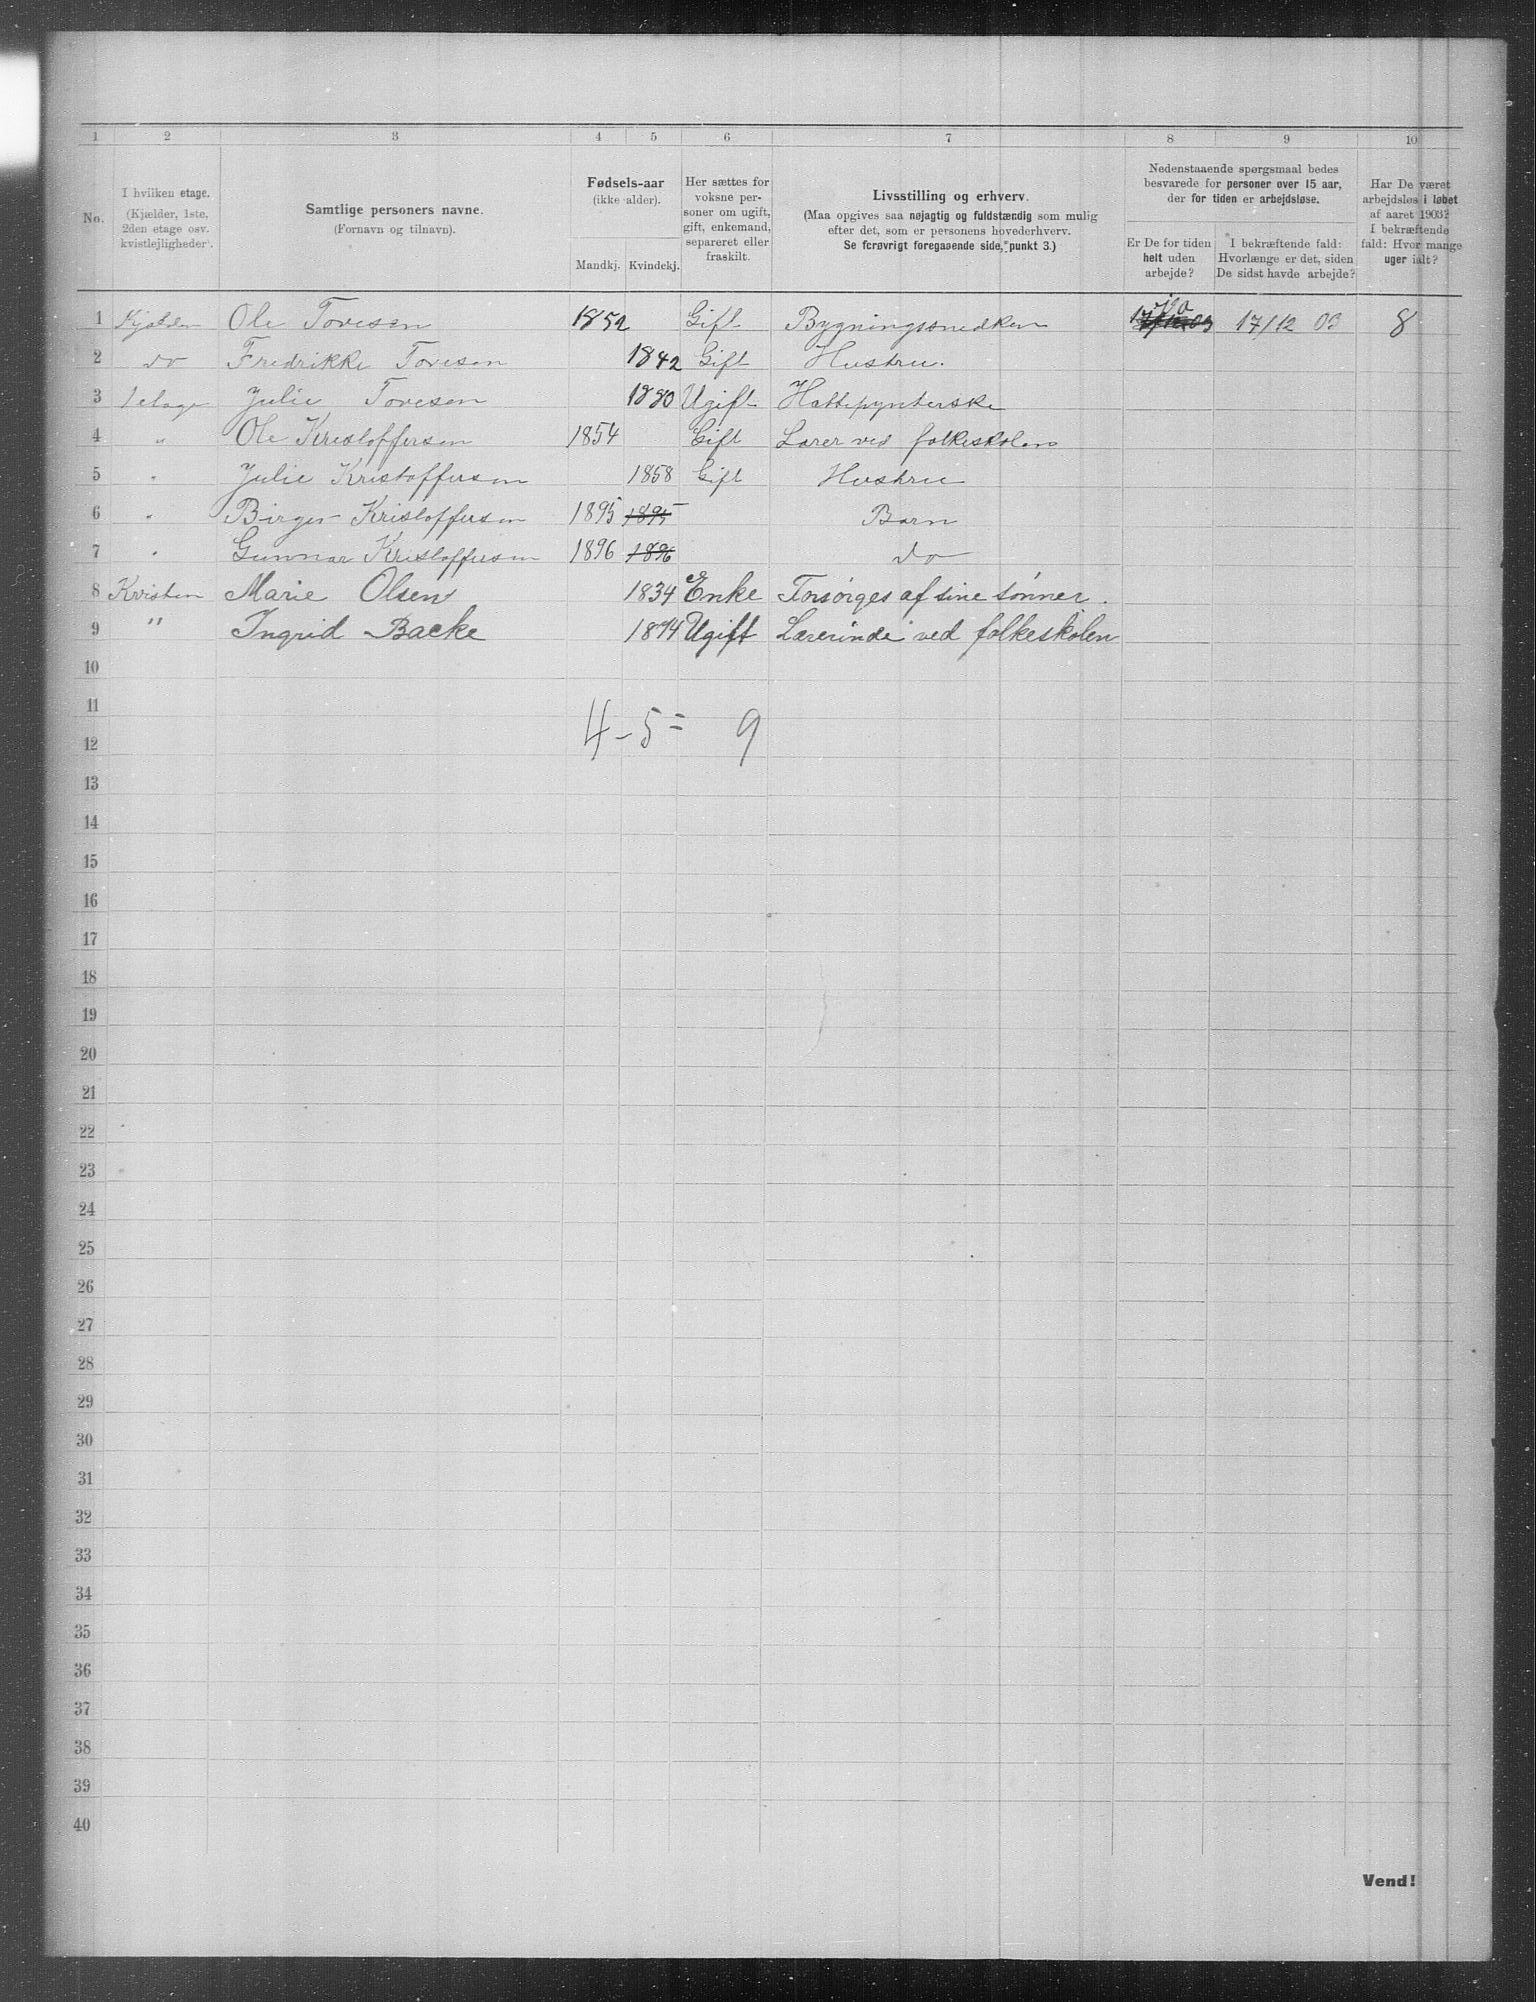 1 2 3 4 5 6 7 8 9 10
No.
I hvilken etage.
(Kjælder, 1ste,
2den etage osv.
kvistlejligheder).
Samtlige personers navne.
(Fornavn og tilnavn).
Fødsels-aar
(ikke alder).
Mandkj. Kvindekj.
Her sættes for
voksne per-
soner om ugift,
gift, enkemand,
separeret eller
fraskilt.
Livsstilling og erhverv.
(Maa opgives saa nøjagtig og fuldstændig som mulig
efter det, som er personens hovederhverv.
Se forøvrigt foregaaende side, punkt 3.)
Nedenstaaende spørgsmaal bedes
besvarede for personer over 15 aar,
der for tiden er arbejdsløse.
Er De for tiden
helt uden
arbejde?
I bekræftende fald:
Hvorlænge er det, siden
De sidst havde arbejde?
Har De været
arbejdsløs i løbet
af aaret 1903?
I bekræftende
fald: Hvor mange
uger ialt?
1 Kjælder Ole Toresen 1852 Gift Bygningssnedker 17/12 03 ja 17/12 03 8
2 do Fredrikke Toresen 1842 Gift Hustru.
3 1 etage Julie Toresen 1880 Ugift Hattepynterske
4 " Ole Kristoffersen 1854 Gift Lærer ved folkeskolen
5 " Julie Kristoffersen 1858 Gift Hustru
6 " Birger Kristoffersen 1895 1895 Barn
7 " Gunnar Kristoffersen 1896 1896 do
8 Kvisten Marie Olsen 1834 Enke Forsørges af sine sønner.
9 " Ingrid Backe 1874 Ugift Lærerinde ved folkeskolen
10
11
4-5= 9
12
13
14
15
16
17
18
19
20
21
22
23
24
25
26
27
28
29
30
31
32
33
34
35
36
37
38
39
40
Vend!